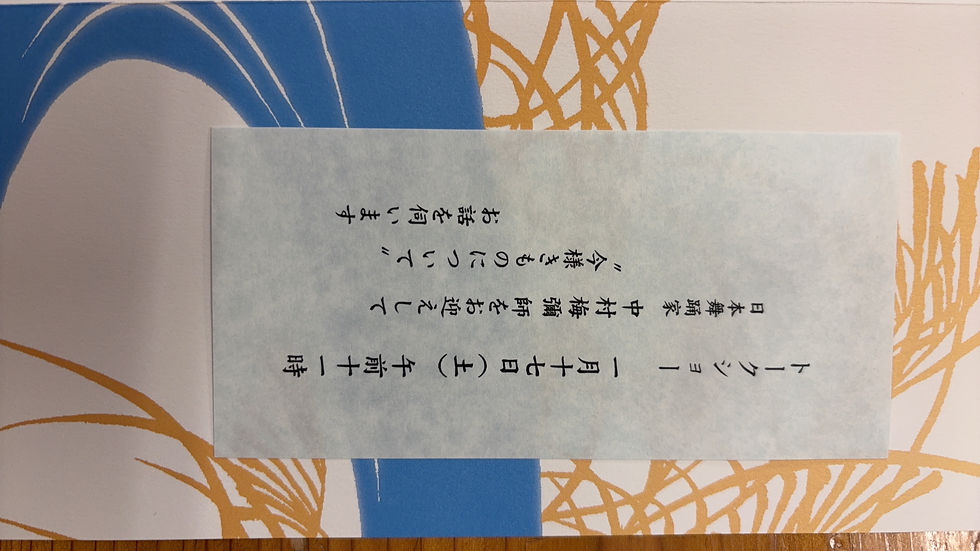 トークショー 一月十七日(土)午前十一時
日本舞踊家 中村梅彌師をお迎えして
〝今様きものについて〟
お話を伺います